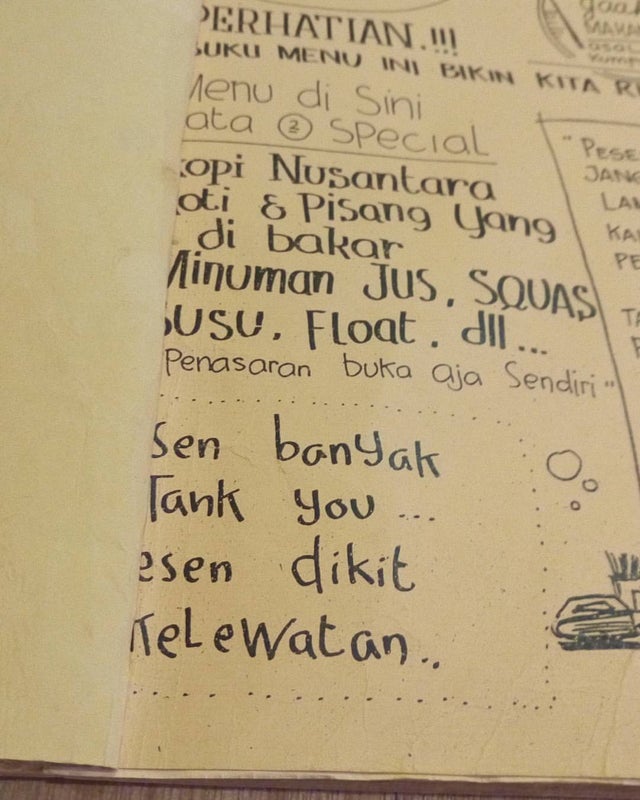 PERHATIAN.!!!
BUKU MENU INI BIKIN KITA
Menu di Sini
ata ② SPecial
kopi Nusantara
oti & Pisang Yang
di bakar
Minuman JUS, SQUAS
SUSU. Float. dll...
Penasaran buka aja Sendiri"
sen banyak
Tank you...
esen dikit
KeLeWatan..
"PESE
JANG
LAM
KA
PE
TA
gaa
MAKA
asa
kump